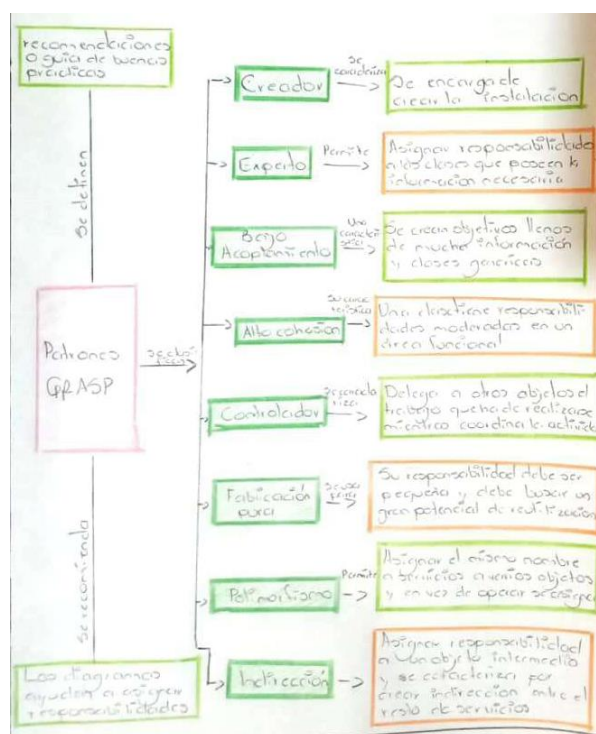 recomendaciones
o guia de buenas
practicas
Se definen
Patrones
GRASP
Se recomienda
Los diagramas
ayuden a asignar
responsabilidades
Creador
Se
caracteriza
Se encarga de
crear la instalación
Experto
Permite
Asignar responsabilidad
a las clases que poseen la
información necesaria
Bajo
Acoplamiento
Una
Se crean objetivos llenos
de mucha información
y clases genéricas
Alta cohesión
Una clase tiene responsabili-
dades moderadas en un
área funcional
Controlador
Delega a otros objetos el
trabajo que ha de realizarse
mientras coordina la activida
Fabricación
pura
Se usa
para
Su responsabilidad debe ser
pequeña y debe buscar un
gran potencial de reutilización
Polimorfismo
Permite
Asignar el mismo nombre
a servicios a varios objetos
y en vez de operar se asigna
Indirección
Asignar responsabilidad
a un objeto intermedio
y se caracteriza por
crear indirección entre el
resto de servicios